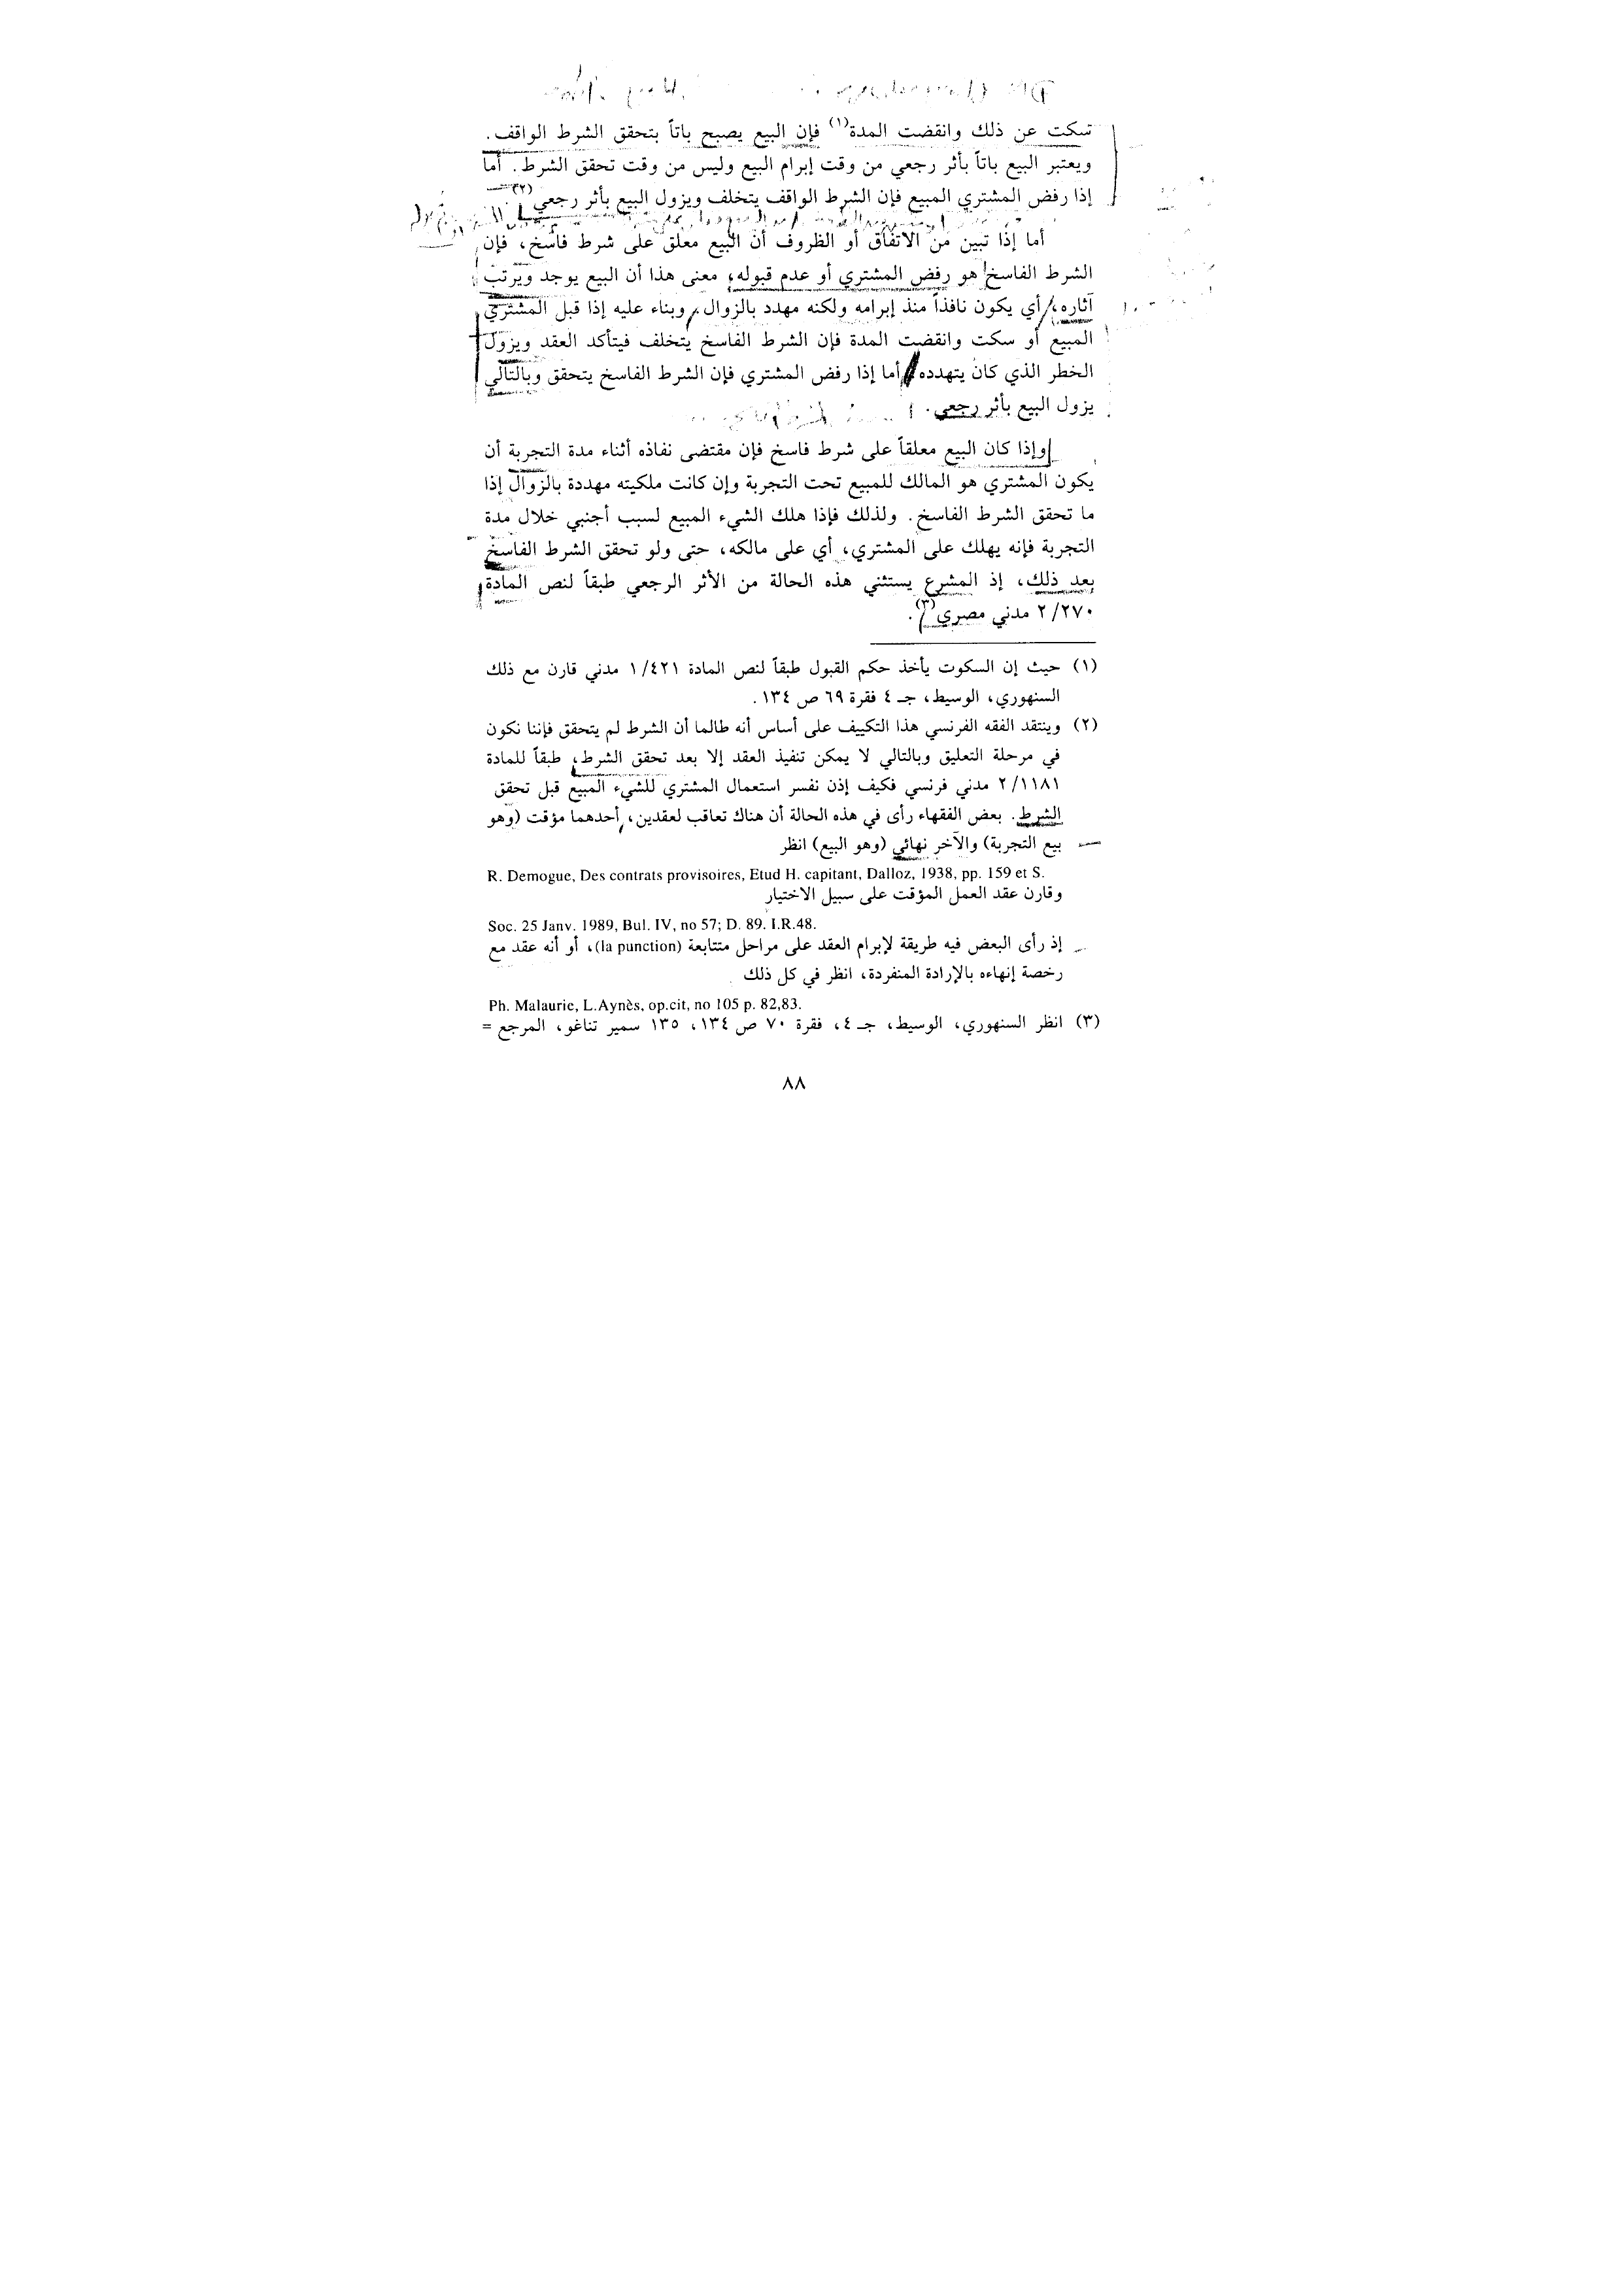 سكت عن ذلك وانقضت المدة(١) فإن البيع يصبح باتاً بتحقق الشرط الواقف.
ويعتبر البيع باتاً بأثر رجعي من وقت إبرام البيع وليس من وقت تحقق الشرط. أما
إذا رفض المشتري المبيع فإن الشرط الواقف يتخلف ويزول البيع بأثر رجعي(٢).
أما إذا تبين من الاتفاق أو الظروف أن البيع معلق على شرط فاسخ، فإن
الشرط الفاسخ هو رفض المشتري أو عدم قبوله، معنى هذا أن البيع يوجد ويرتب
آثاره، أي يكون نافذاً منذ إبرامه ولكنه مهدد بالزوال، وبناء عليه إذا قبل المشتري
المبيع أو سكت وانقضت المدة فإن الشرط الفاسخ يتخلف فيتأكد العقد ويزول
الخطر الذي كان يتهدده أما إذا رفض المشتري فإن الشرط الفاسخ يتحقق وبالتالي
يزول البيع بأثر رجعي.
وإذا كان البيع معلقاً على شرط فاسخ فإن مقتضى نفاذه أثناء مدة التجربة أن
يكون المشتري هو المالك للمبيع تحت التجربة وإن كانت ملكيته مهددة بالزوال إذا
ما تحقق الشرط الفاسخ. ولذلك فإذا هلك الشيء المبيع لسبب أجنبي خلال مدة
التجربة فإنه يهلك على المشتري، أي على مالكه، حتى ولو تحقق الشرط الفاسخ
بعد ذلك، إذ المشرع يستثني هذه الحالة من الأثر الرجعي طبقاً لنص المادة
٢/٢٧٠ مدني مصري(٣).
(١) حيث إن السكوت يأخذ حكم القبول طبقاً لنص المادة ١/٤٢١ مدني قارن مع ذلك
السنهوري، الوسيط، جـ ٤ فقرة ٦٩ ص ١٣٤.
(٢) وينتقد الفقه الفرنسي هذا التكييف على أساس أنه طالما أن الشرط لم يتحقق فإننا نكون
في مرحلة التعليق وبالتالي لا يمكن تنفيذ العقد إلا بعد تحقق الشرط، طبقاً للمادة
٢/١١٨١ مدني فرنسي فكيف إذن نفسر استعمال المشتري للشيء المبيع قبل تحقق
الشرط. بعض الفقهاء رأى في هذه الحالة أن هناك تعاقب لعقدين، أحدهما مؤقت (وهو
بيع التجربة) والآخر نهائي (وهو البيع) انظر
R. Demogue, Des contrats provisoires, Etud H. capitant, Dalloz, 1938, pp. 159 et S.
وقارن عقد العمل المؤقت على سبيل الاختيار
Soc. 25 Janv. 1989, Bul. IV, no 57; D. 89. I.R.48.
إذ رأى البعض فيه طريقة لإبرام العقد على مراحل متتابعة (la punction)، أو أنه عقد مع
رخصة إنهاءه بالإرادة المنفردة، انظر في كل ذلك
Ph. Malaurie, L.Aynès, op.cit, no 105 p. 82,83.
(٣) انظر السنهوري، الوسيط، جـ ٤، فقرة ٧٠ ص ١٣٤، ١٣٥ سمير تناغو، المرجع =
٨٨